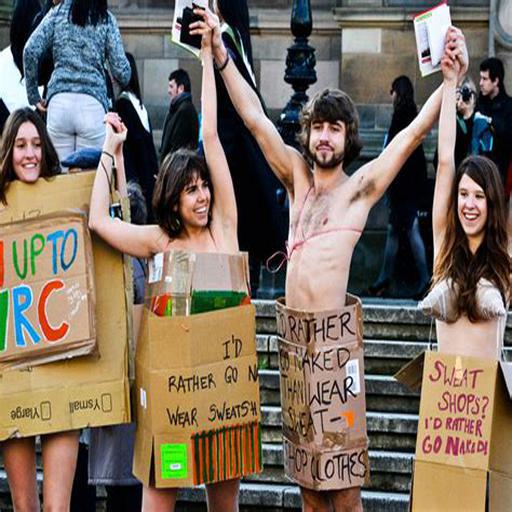 UP TO
RC
Ysmall
Xlarge
I'D
RATHER GO N
WEAR SWEATSH
I'D RATHER
GO NAKED
THAN WEAR
SWEAT-
SHOP CLOTHES
SWEAT
SHOPS?
I'D RATHER
GO NAKED!